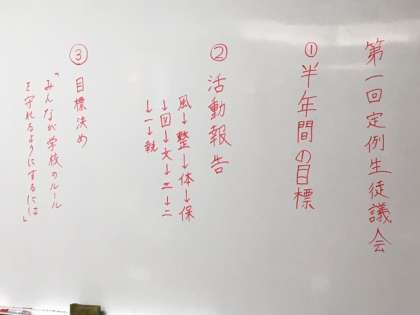 第一回定例生徒議会
①半年間の目標
②活動報告
風→整→体→保
→図→文→三→二
→一→銃
③目標決め
「みんなが学校のルール
を守れるようにするには」